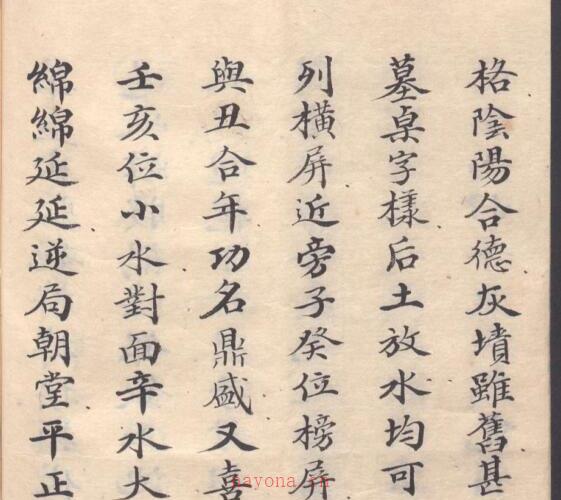 格陰陽合德灰墳雖舊甚
墓桌字樣后土放水均可
列橫屏近旁子癸位榜屏
與丑合年功名鼎盛又喜
壬亥位小水對面辛水大
綿綿延延逆局朝堂平正
nayona.cn